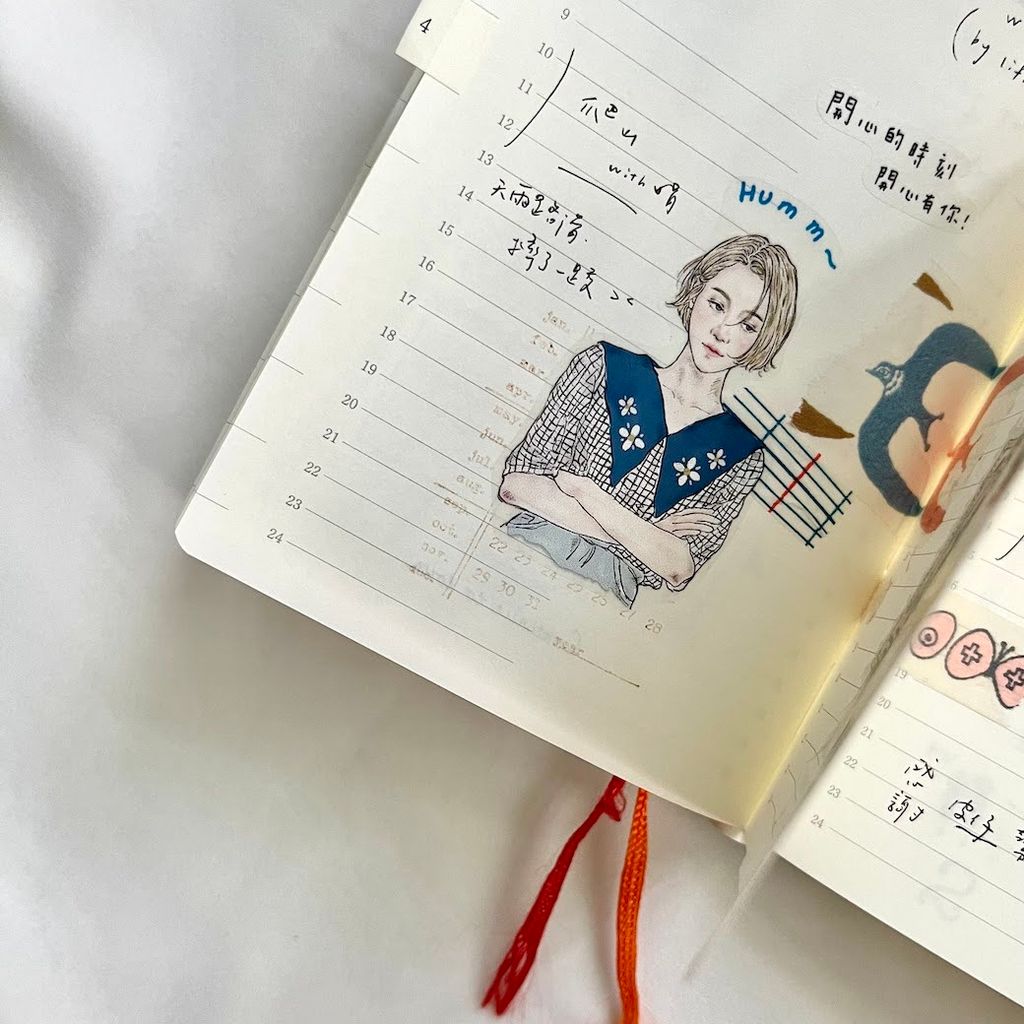 4
9
10
11
12
13
14
15
16
17
18
19
20
21
22
23
24
爬山
with
天雨路滑.
摔了一跤 ><
Humm~
開心的時刻
開心有你!
(by
jan.
feb.
mar.
apr.
may.
jun.
jul.
aug.
sep.
oct.
nov.
dec.
22 23 24 25 26 27 28
29 30 31
year
19
20
21
22
23
24
感
謝 皮仔